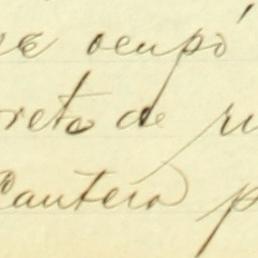 se ocupó
reto de
Cantera p